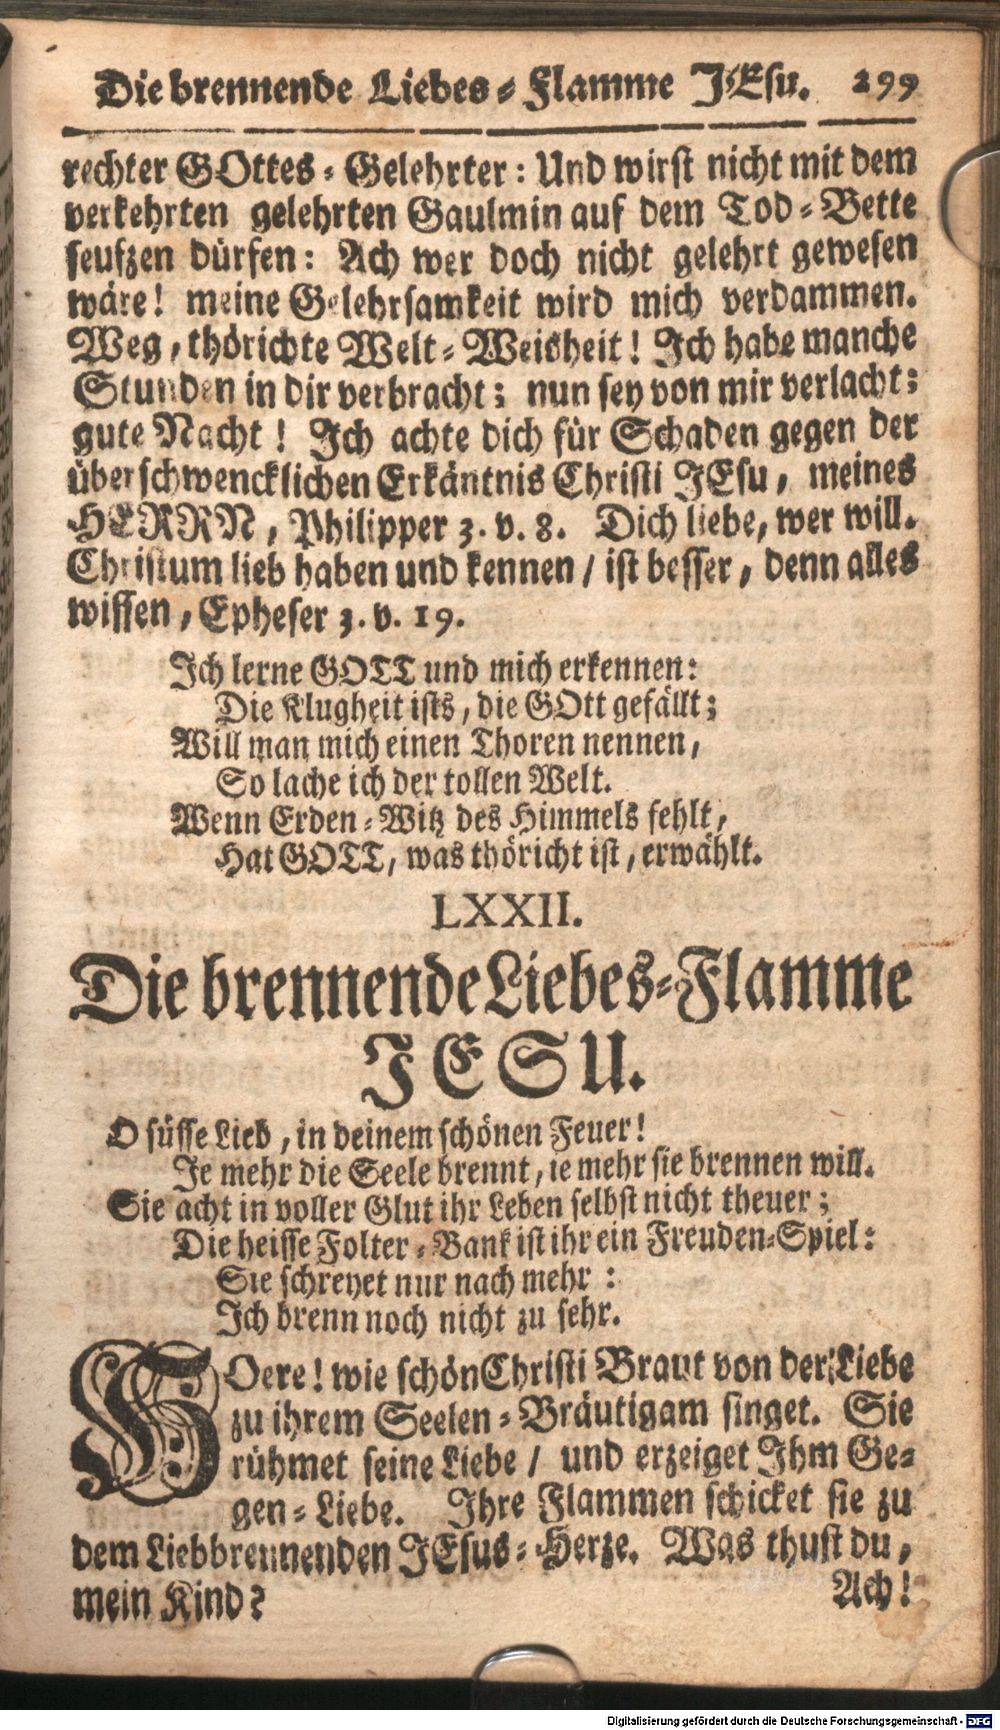 Die brennende Liebes-Flamme JEsu. 299
rechter GOttes-Gelehrter: Und wirst nicht mit dem
verkehrten gelehrten Gaulmin auf dem Tod-Bette
seufzen dürfen: Ach wer doch nicht gelehrt gewesen
wäre! meine Gelehrsamkeit wird mich verdammen.
Weg, thörichte Welt-Weisheit! Ich habe manche
Stunden in dir verbracht; nun sey von mir verlacht:
gute Nacht! Ich achte dich für Schaden gegen der
überschwencklichen Erkäntnis Christi JEsu, meines
HERRN, Philipper 3. v. 8. Dich liebe, wer will.
Christum lieb haben und kennen / ist besser, denn alles
wissen, Epheser 3. v. 19.
Ich lerne GOTT und mich erkennen:
Die Klugheit ists, die GOtt gefällt;
Will man mich einen Thoren nennen,
So lache ich der tollen Welt.
Wenn Erden-Witz des Himmels fehlt,
Hat GOTT, was thöricht ist, erwählt.
LXXII.
Die brennende Liebes-Flamme
JESU.
O süsse Lieb, in deinem schönen Feuer!
Je mehr die Seele brennt, ie mehr sie brennen will.
Sie acht in voller Glut ihr Leben selbst nicht theuer;
Die heisse Folter-Bank ist ihr ein Freuden-Spiel:
Sie schreyet nur nach mehr:
Ich brenn noch nicht zu sehr.
HOere! wie schön Christi Braut von der Liebe
zu ihrem Seelen-Bräutigam singet. Sie
rühmet seine Liebe / und erzeiget Ihm Ge-
gen-Liebe. Ihre Flammen schicket sie zu
dem Liebbrennenden JEsus-Herze. Was thust du,
mein Kind?
Ach!
Digitalisierung gefördert durch die Deutsche Forschungsgemeinschaft - DFG